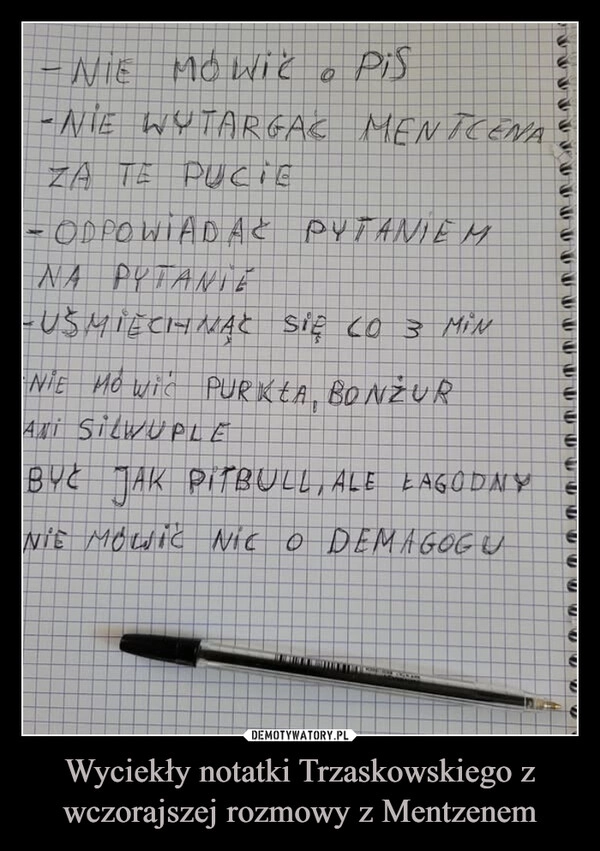 - NIE MÓWIĆ o PiS
- NIE WYTARGAĆ MENTCENA
ZA TE PUCIE
- ODPOWIADAĆ PYTANIEM
NA PYTANIE
- UŚMIECHNĄĆ SIĘ CO 3 MIN
NIE MÓWIĆ PURKŁA, BONŻUR
ANI SILWUPLE
BYĆ JAK PITBULL, ALE ŁAGODNY
NIE MÓWIĆ NIC O DEMAGOGU
DEMOTYWATORY.PL
Wyciekły notatki Trzaskowskiego z
wczorajszej rozmowy z Mentzenem